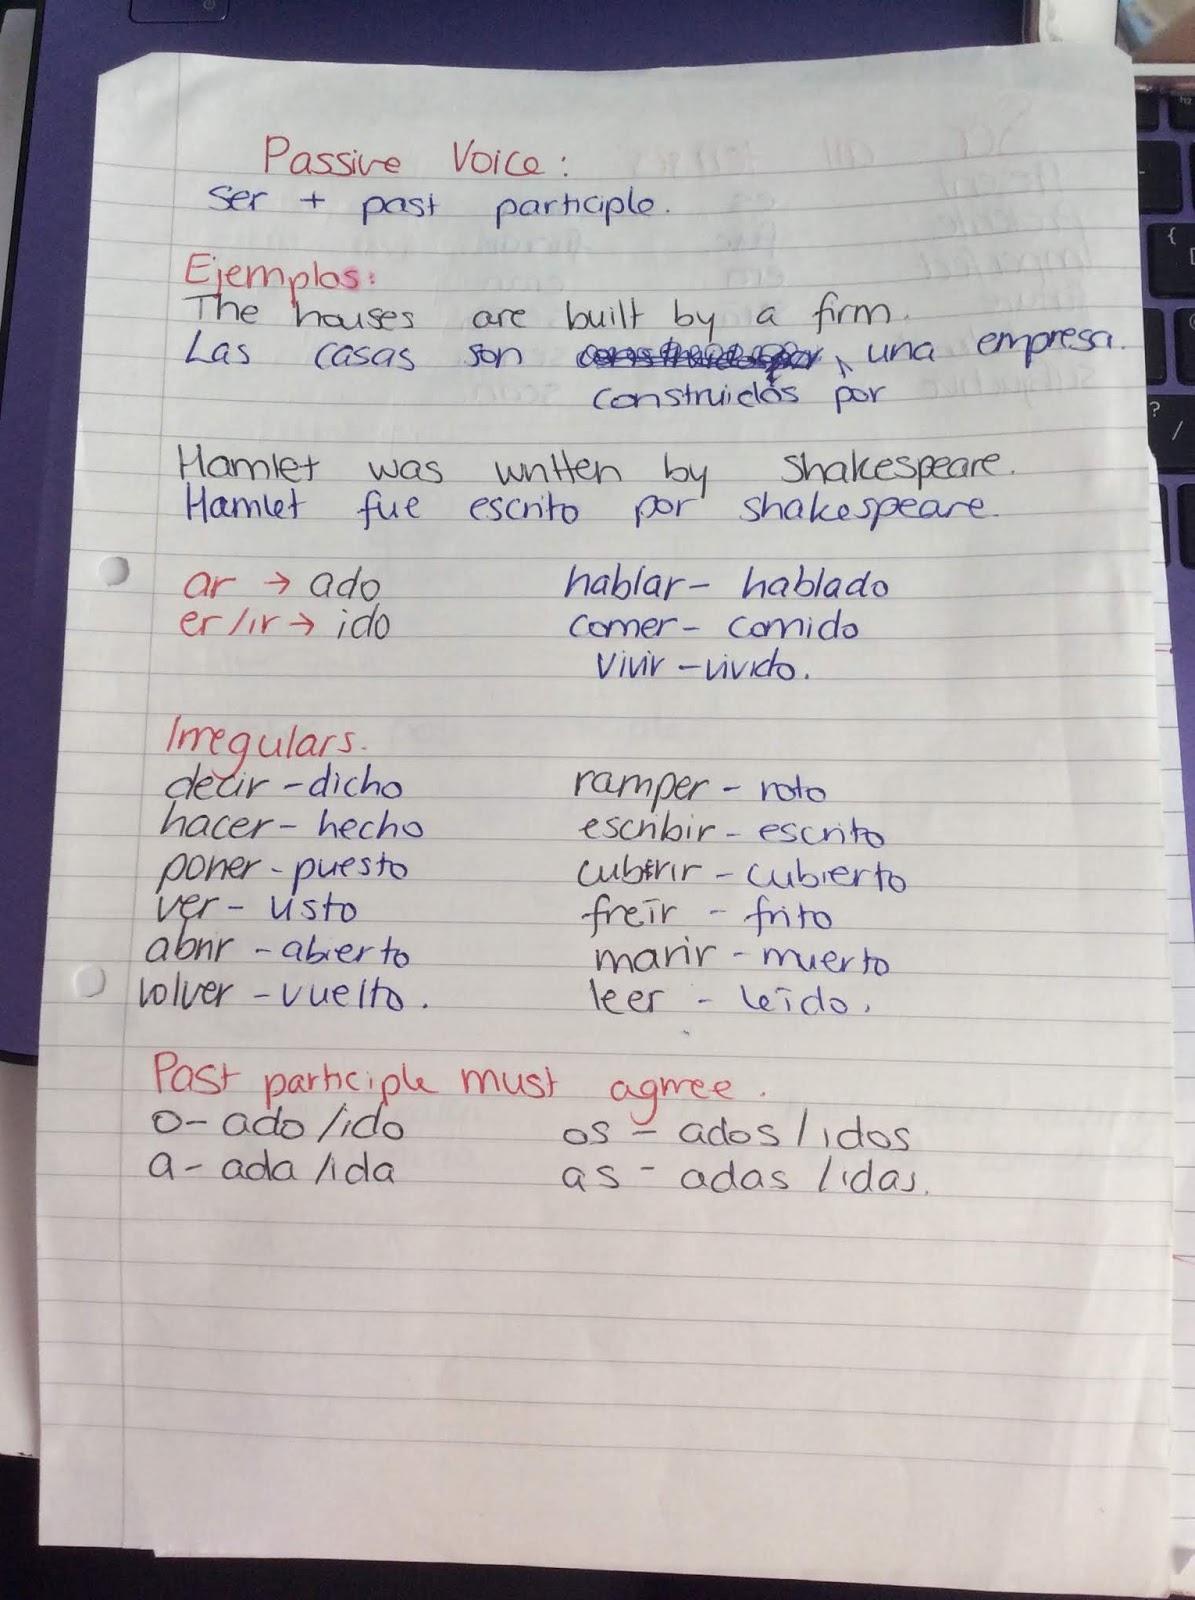 Passive Voice:
ser + past participle.
Ejemplos:
The houses are built by a firm.
Las casas son una empresa.
construidas por
Hamlet was written by Shakespeare.
Hamlet fue escrito por Shakespeare.
ar → ado hablar - hablado
er/ir → ido comer - comido
vivir - vivido.
Irregulars.
decir - dicho ramper - roto
hacer - hecho escribir - escrito
poner - puesto cubrir - cubierto
ver - visto freīr - frito
abrir - abierto marir - muerto
volver - vuelto. leer - leīdo.
Past participle must agree.
o - ado/ido os - ados/idos
a - ada/ida as - adas/idas.